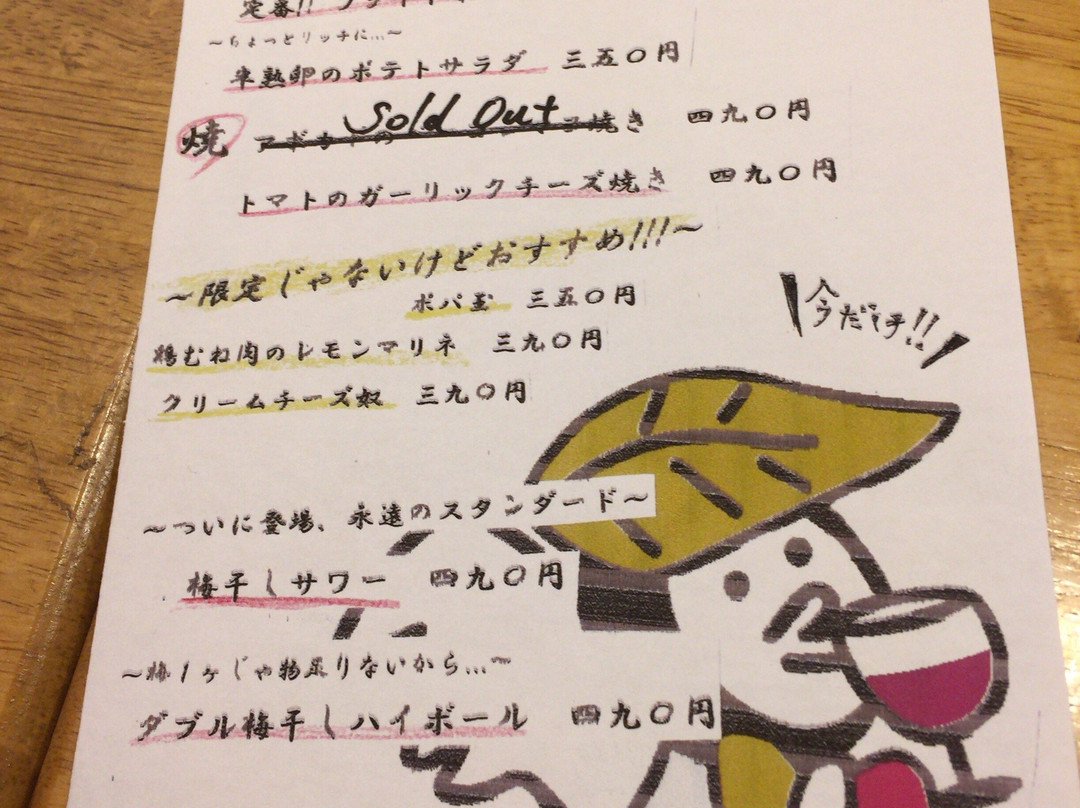 定番!!
~ちょっとリッチに…~
半熟卵のポテトサラダ 三五〇円
Sold Out
焼 焼き 四九〇円
トマトのガーリックチーズ焼き 四九〇円
~限定じゃないけどおすすめ!!!~
ポパ玉 三五〇円
今だけ!!
鶏むね肉のレモンマリネ 三九〇円
クリームチーズ奴 三九〇円
~ついに登場、永遠のスタンダード~
梅干しサワー 四九〇円
~梅1ヶじゃ物足りないから…~
ダブル梅干しハイボール 四九〇円